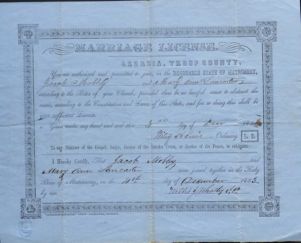 MARRIAGE LICENSE.
GEORGIA, TROUP COUNTY.
You are authorized and permitted to join, in the HONORABLE STATE OF MATRIMONY,
Jacob Mobly and Mary Ann Lancaster
according to the Rites of your Church, provided there be no lawful cause to obstruct the
same, according to the Constitution and Laws of this State, and for so doing this shall be
your sufficient license.
Given under my hand and seal this 3rd day of
Ordinary L. S.
To any Minister of the Gospel, Judge, Justice of the Inferior Court, or Justice of the Peace, to celebrate.
I Hereby Certify, That Jacob Mobly and
Mary Ann Lancaster were joined together in the Holy
Bans of Matrimony, on the 4th day of December
by me